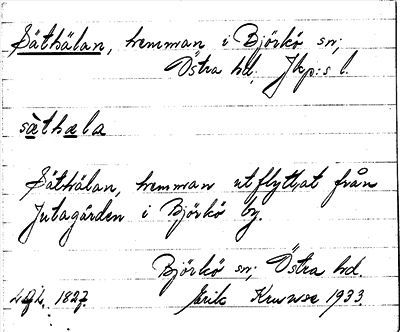 Säthälan, hemman i Björkö sn;
Östra hd. Jkp:s l.
sàthæla
Säthälan, hemman utflyttat från
Jutagården i Björkö by.
Björkö sn; Östra hd.
1827. Erik 1933.